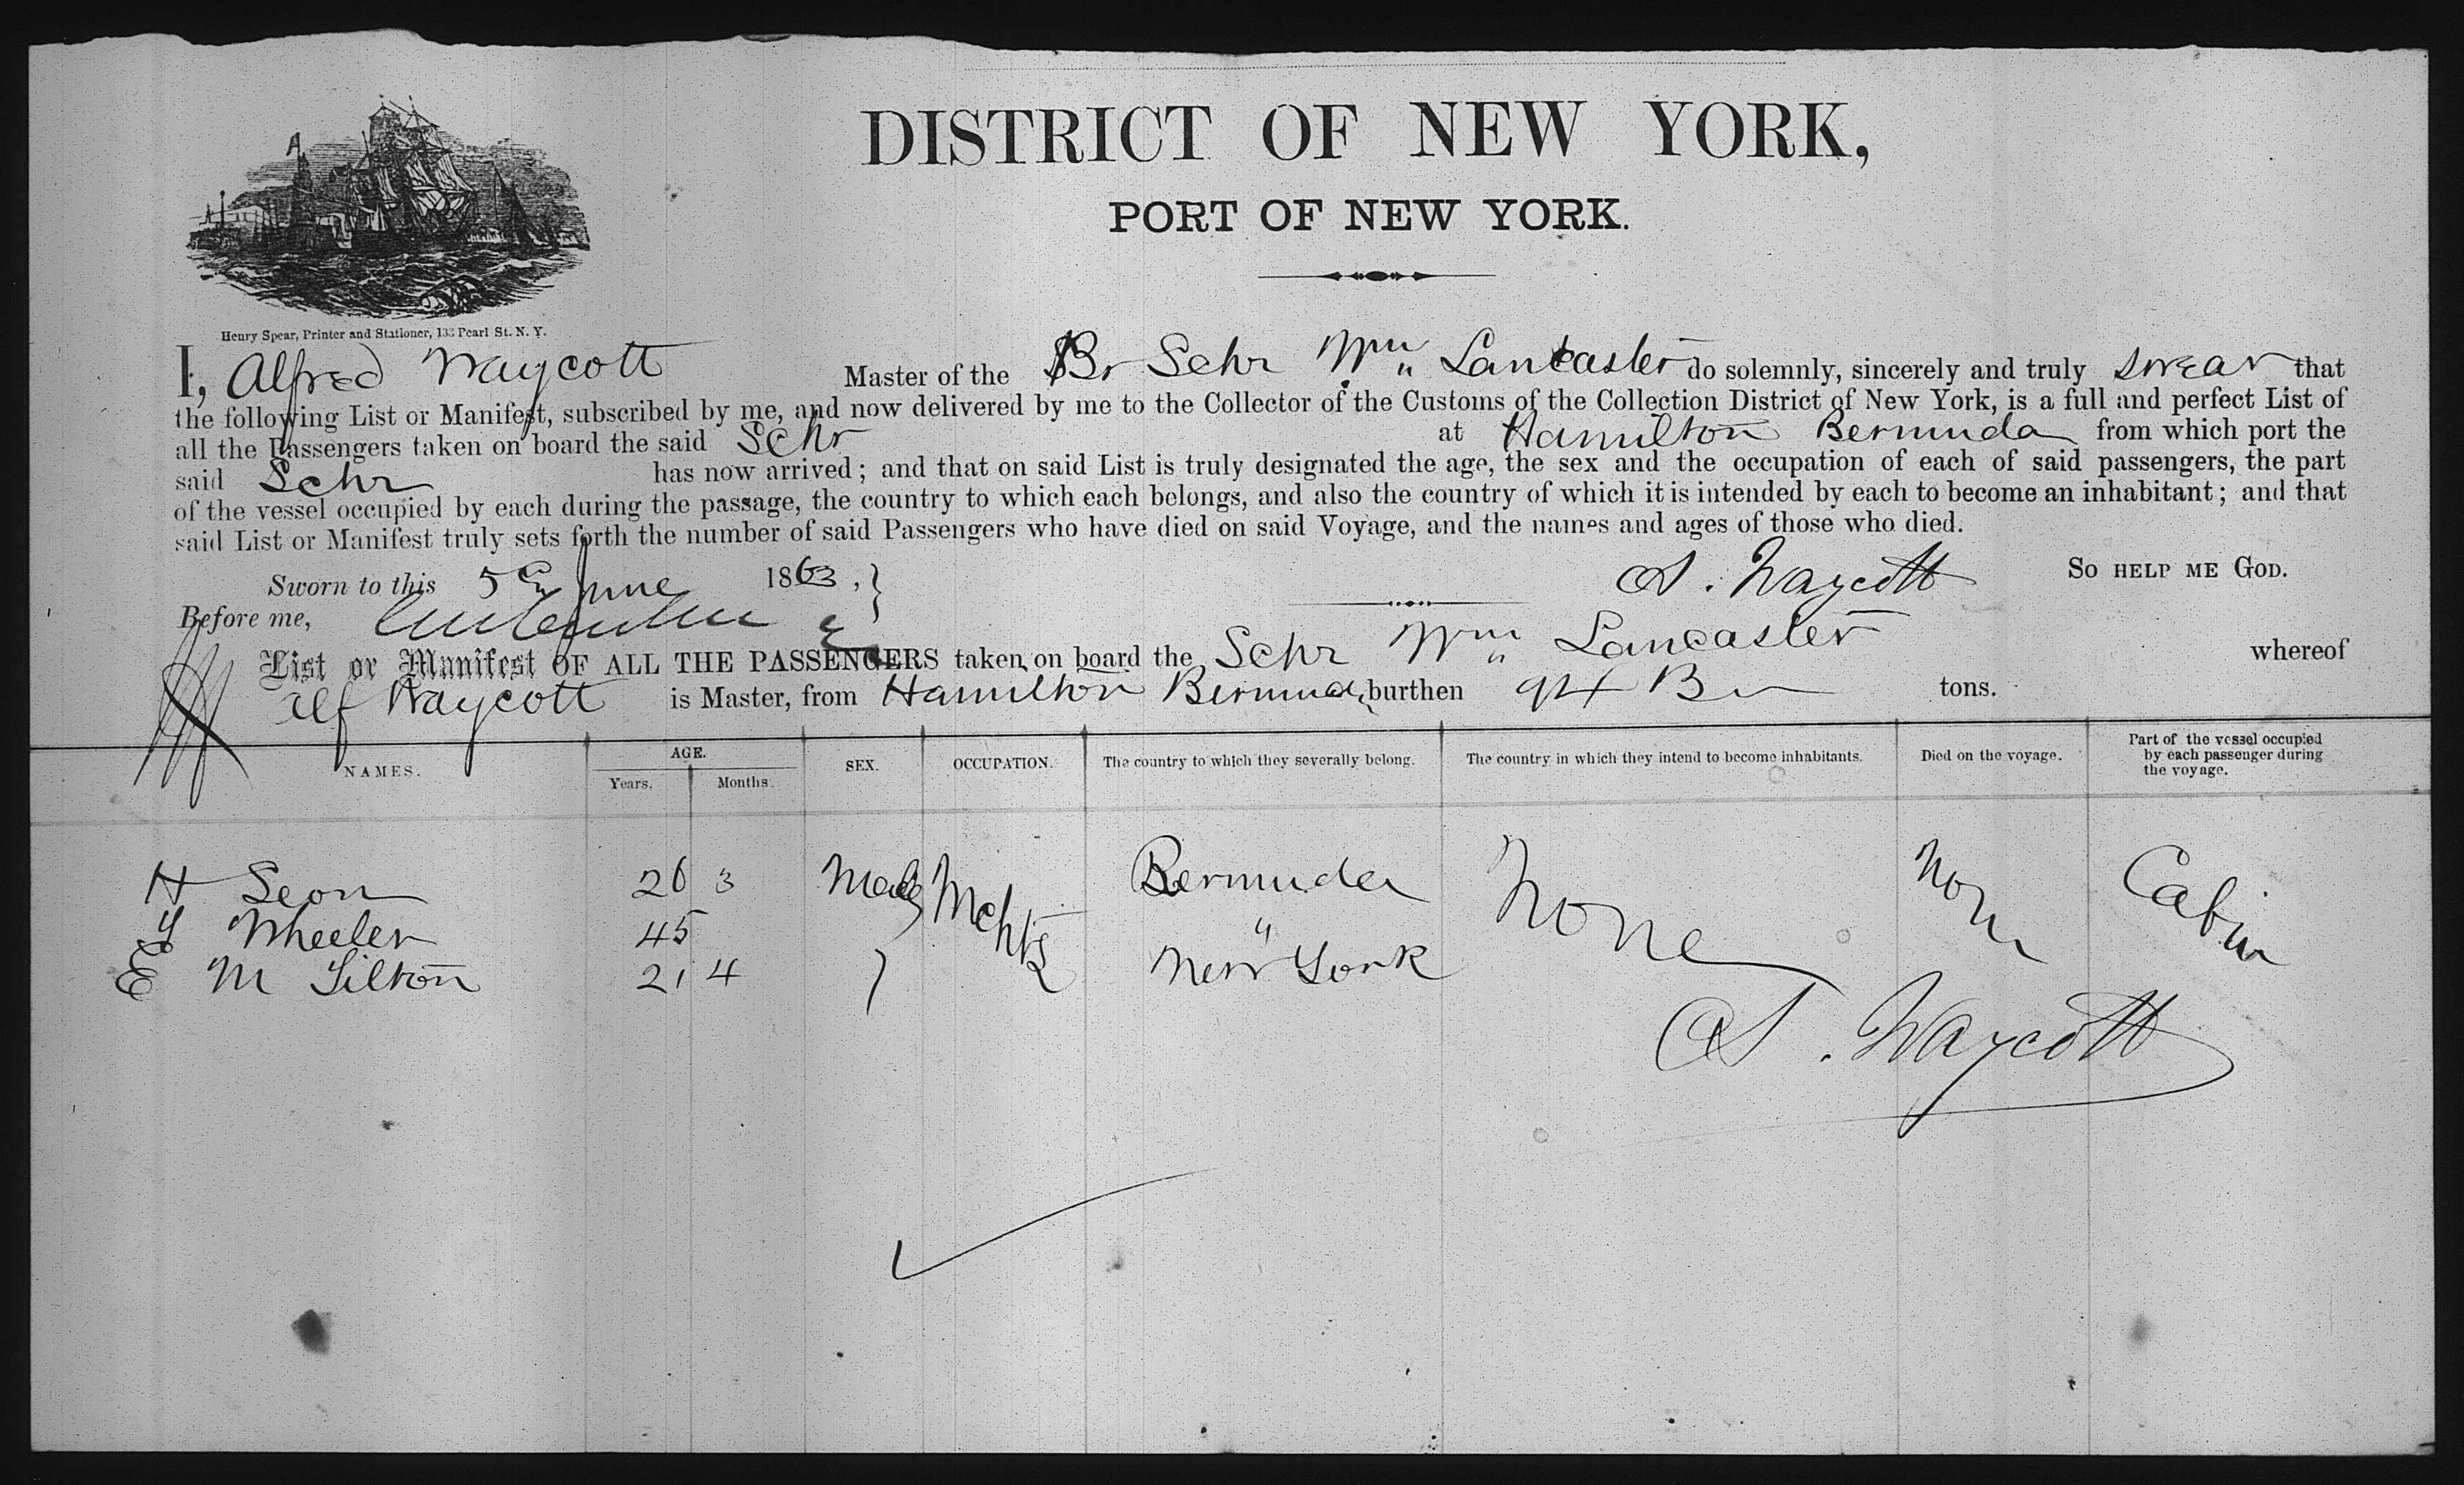 DISTRICT OF NEW YORK,
PORT OF NEW YORK.
Henry Spear, Printer and Stationer, 133 Pearl St. N. Y.
I, Alfred Waycott Master of the Br Schr Wm Lancaster do solemnly, sincerely and truly swear that
the following List or Manifest, subscribed by me, and now delivered by me to the Collector of the Customs of the Collection District of New York, is a full and perfect List of
all the Passengers taken on board the said Schr at Hamilton Bermuda from which port the
said Schr has now arrived; and that on said List is truly designated the age, the sex and the occupation of each of said passengers, the part
of the vessel occupied by each during the passage, the country to which each belongs, and also the country of which it is intended by each to become an inhabitant; and that
said List or Manifest truly sets forth the number of said Passengers who have died on said Voyage, and the names and ages of those who died.
Sworn to this 5th June 1863, A. Waycott SO HELP ME GOD.
Before me,
List or Manifest OF ALL THE PASSENGERS taken on board the Schr Wm Lancaster whereof
Alf Waycott is Master, from Hamilton Bermuda burthen 94 tons.
NAMES. AGE. Years. Months. SEX. OCCUPATION. The country to which they severally belong. The country in which they intend to become inhabitants. Died on the voyage. Part of the vessel occupied by each passenger during the voyage.
H Seon 26 3 Male Mchts Bermuda None Non Cabin
Y Wheeler 45 "
E M Tilton 21 4 New York
A. Waycott